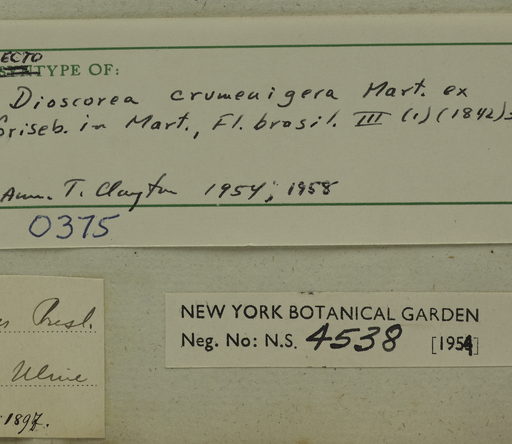 ECTO
TYPE OF:
Dioscorea crumenigera Mart. ex
Griseb. in Mart., Fl. brasil. III (1) (1842)
Ann. T. Clayton 1954; 1958
0375
Presl.
NEW YORK BOTANICAL GARDEN
Neg. No: N.S. 4538 [1954]
Uline
1897.